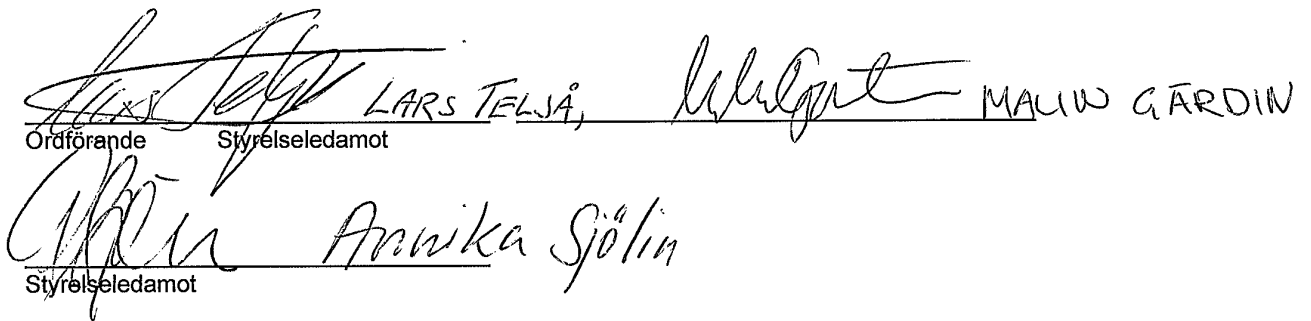 LARS TELJÅ, MALIN GÄRDIN
Ordförande Styrelseledamot
Annika Sjölin
Styrelseledamot